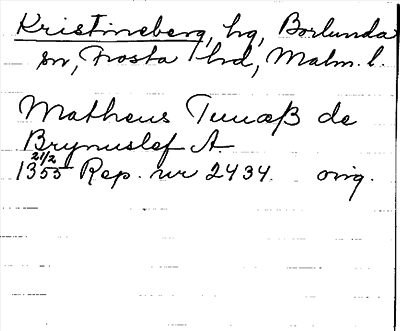 Kristineberg, hg, Borlunda
sn, Frosta hd, Malm. l.
Matheus Tuuæß de
Brynuslef A.
21/2
1355 Rep. nr 2434. orig.